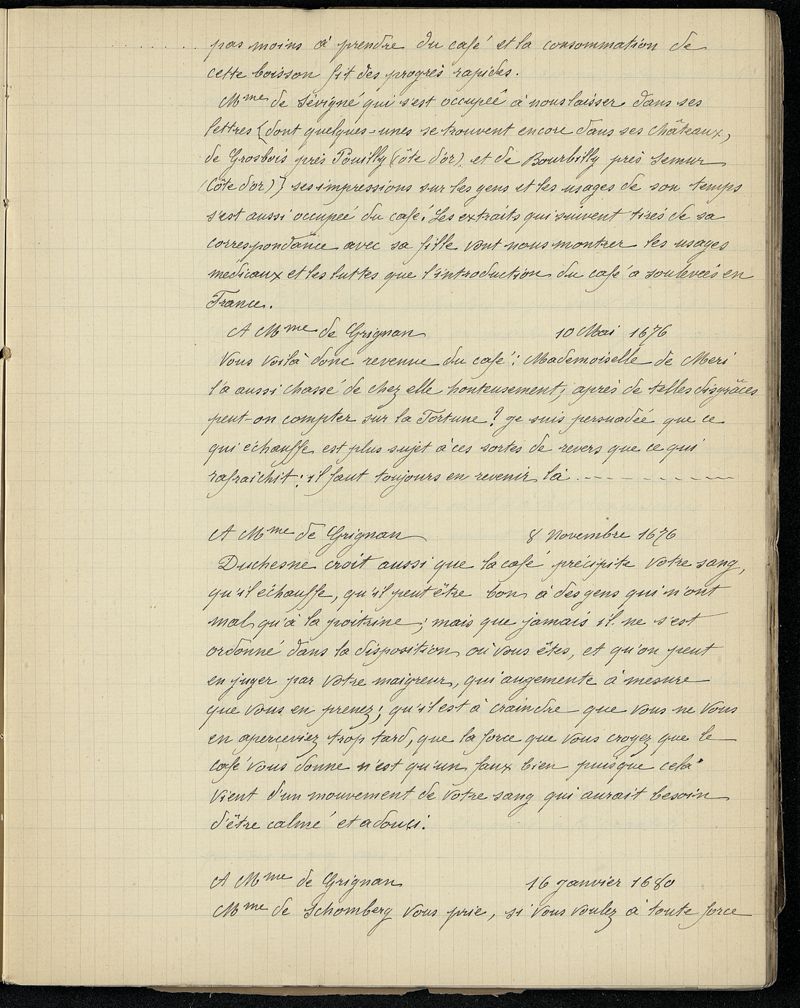 pas moins à prendre du café et la consommation de
cette boisson fit des progrès rapides.
Mme de Sévigné qui s'est occupée à nous laisser dans ses
lettres (dont quelques-unes se trouvent encore dans ses châteaux,
de Grosbois près Pouilly (Côte d'or) et de Bourbilly près Semur
(Côte d'or)) ses impressions sur les gens et les usages de son temps
s'est aussi occupée du café. Les extraits qui suivent tirés de sa
correspondance avec sa fille vont nous montrer les usages
médicaux et les luttes que l'introduction du café a soulevées en
France.
A Mme de Grignan 10 Mai 1676
Vous voilà donc revenue du café : Mademoiselle de Meri
l'a aussi chassé de chez elle honteusement, après de telles disgrâces
peut-on compter sur la Fortune ? je suis persuadée que ce
qui échauffe est plus sujet à ces sortes de revers que ce qui
rafraîchit : il faut toujours en revenir là ...----------
A Mme de Grignan 8 Novembre 1676
Duchesne croit aussi que la café précipite votre sang,
qu'il échauffe, qu'il peut être bon à des gens qui n'ont
mal qu'à la poitrine ; mais que jamais il ne s'est
ordonné dans la disposition où vous êtes, et qu'on peut
en juger par votre maigreur, qui augemente à mesure
que vous en prenez ; qu'il est à craindre que vous ne vous
en aperceviez trop tard, que la force que vous croyez que le
café vous donne n'est qu'un faux bien puisque cela
vient d'un mouvement de votre sang qui aurait besoin
d'être calmé et adouci.
A Mme de Grignan 16 janvier 1680
Mme de Schomberg vous prie, si vous voulez à toute force